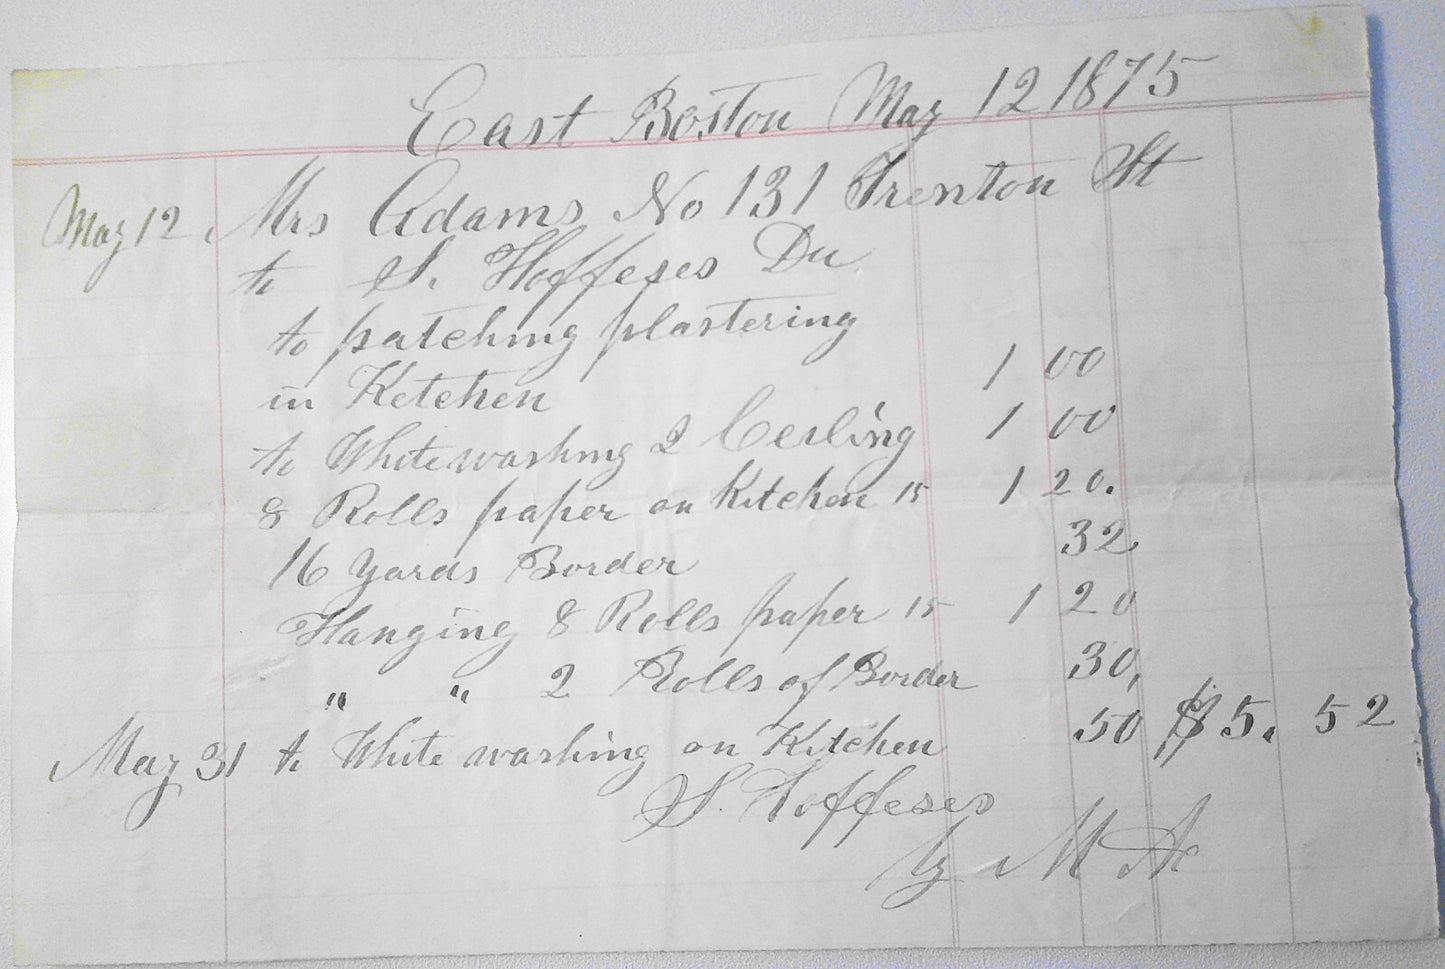 East Boston May 12 1875
May 12 Mrs Adams No 131 Trenton St
to S. Hoffeses Du
to patching plastering
in Ketchen 1 00
to White washing 2 Cesling 1 00
8 Rolls paper on Kitchen 15 1 20.
16 yards Border 32
Hanging 8 Rolls paper 15 1 20
" " 2 Rolls of Border 30,
May 31 to White washing on Kitchen 50 $5. 52
S. Hoffeses
by M A